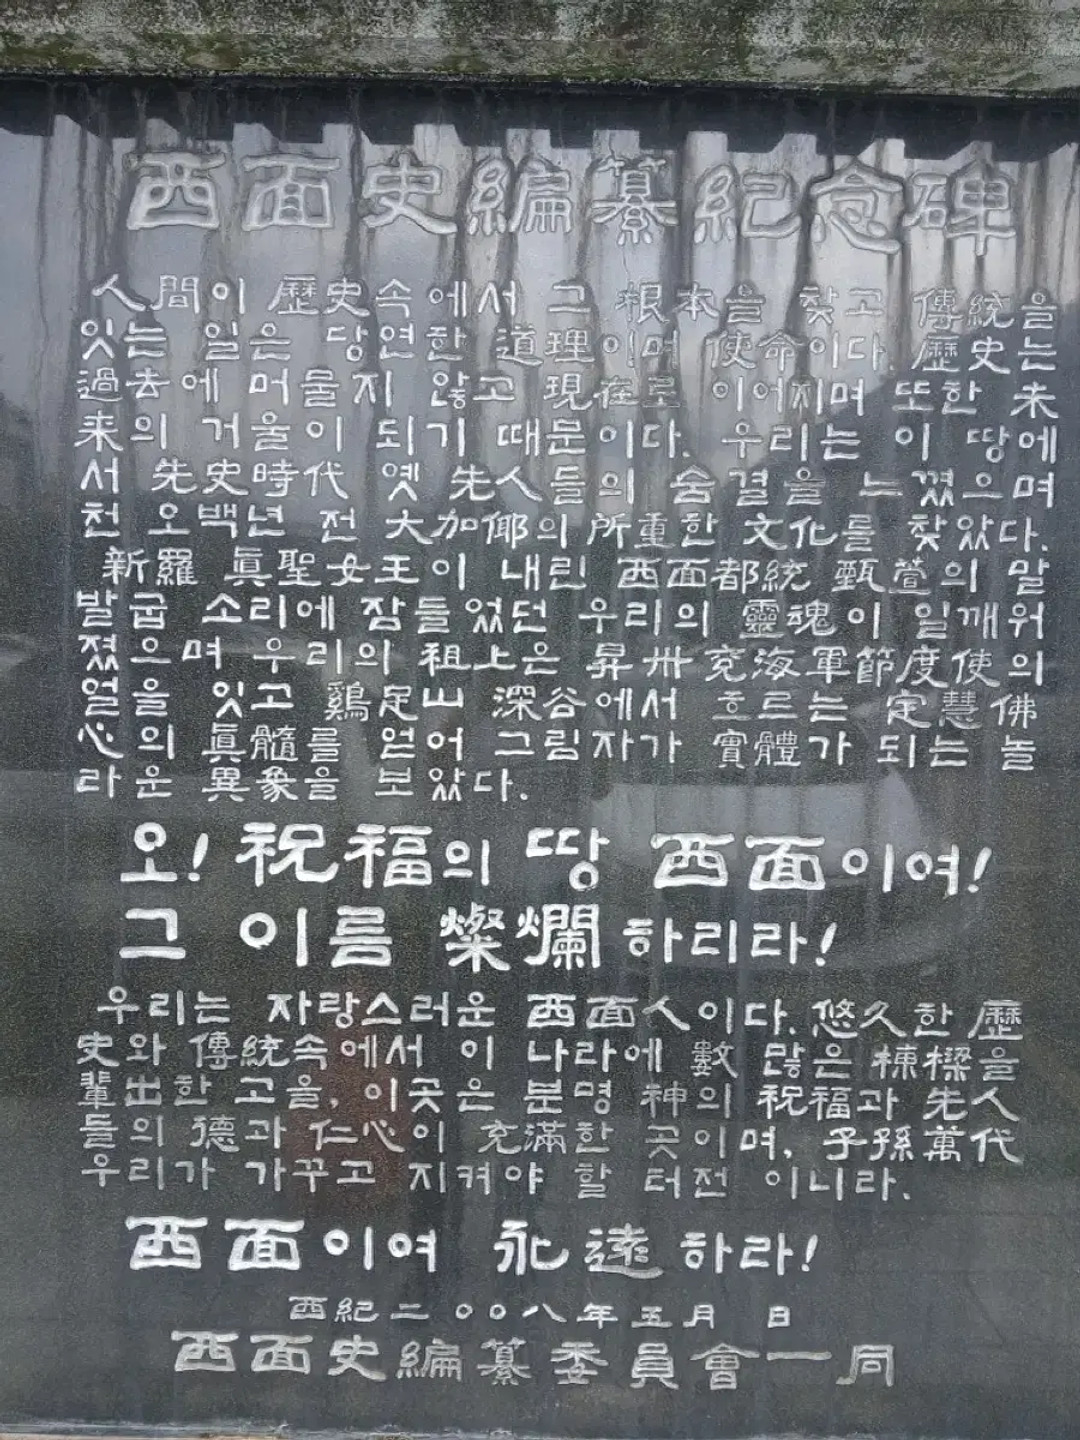 西面史編纂紀念碑
人間이 歷史속에서 그 根本을 찾고 傳統을
잇는 일은 당연한 道理이며 使命이다. 歷史는
過去에 머물지 않고 現在로 이어지며 또한 未
来의 거울이 되기 때문이다. 우리는 이 땅에
서 先史時代 옛 先人들의 숨결을 느꼈으며
천 오백년 전 大加倻의 所重한 文化를 찾았다.
新羅 眞聖女王이 내린 西面都統 甄萱의 말
발굽 소리에 잠들었던 우리의 靈魂이 일깨워
졌으며 우리의 祖上은 昇州 兗海軍節度使의
얼을 잇고 鷄足山 深谷에서 흐르는 定慧 佛
心의 眞髓를 얻어 그림자가 實體가 되는 놀
라운 異象을 보았다.
오! 祝福의 땅 西面이여!
그 이름 燦爛하리라!
우리는 자랑스러운 西面人이다. 悠久한 歷
史와 傳統속에서 이 나라에 數 많은 棟樑을
輩出한 고을, 이곳은 분명 神의 祝福과 先人
들의 德과 仁心이 充滿한 곳이며, 子孫萬代
우리가 가꾸고 지켜야 할 터전 이니라.
西面이여 永遠하라!
西紀二〇〇八年五月 日
西面史編纂委員會一同